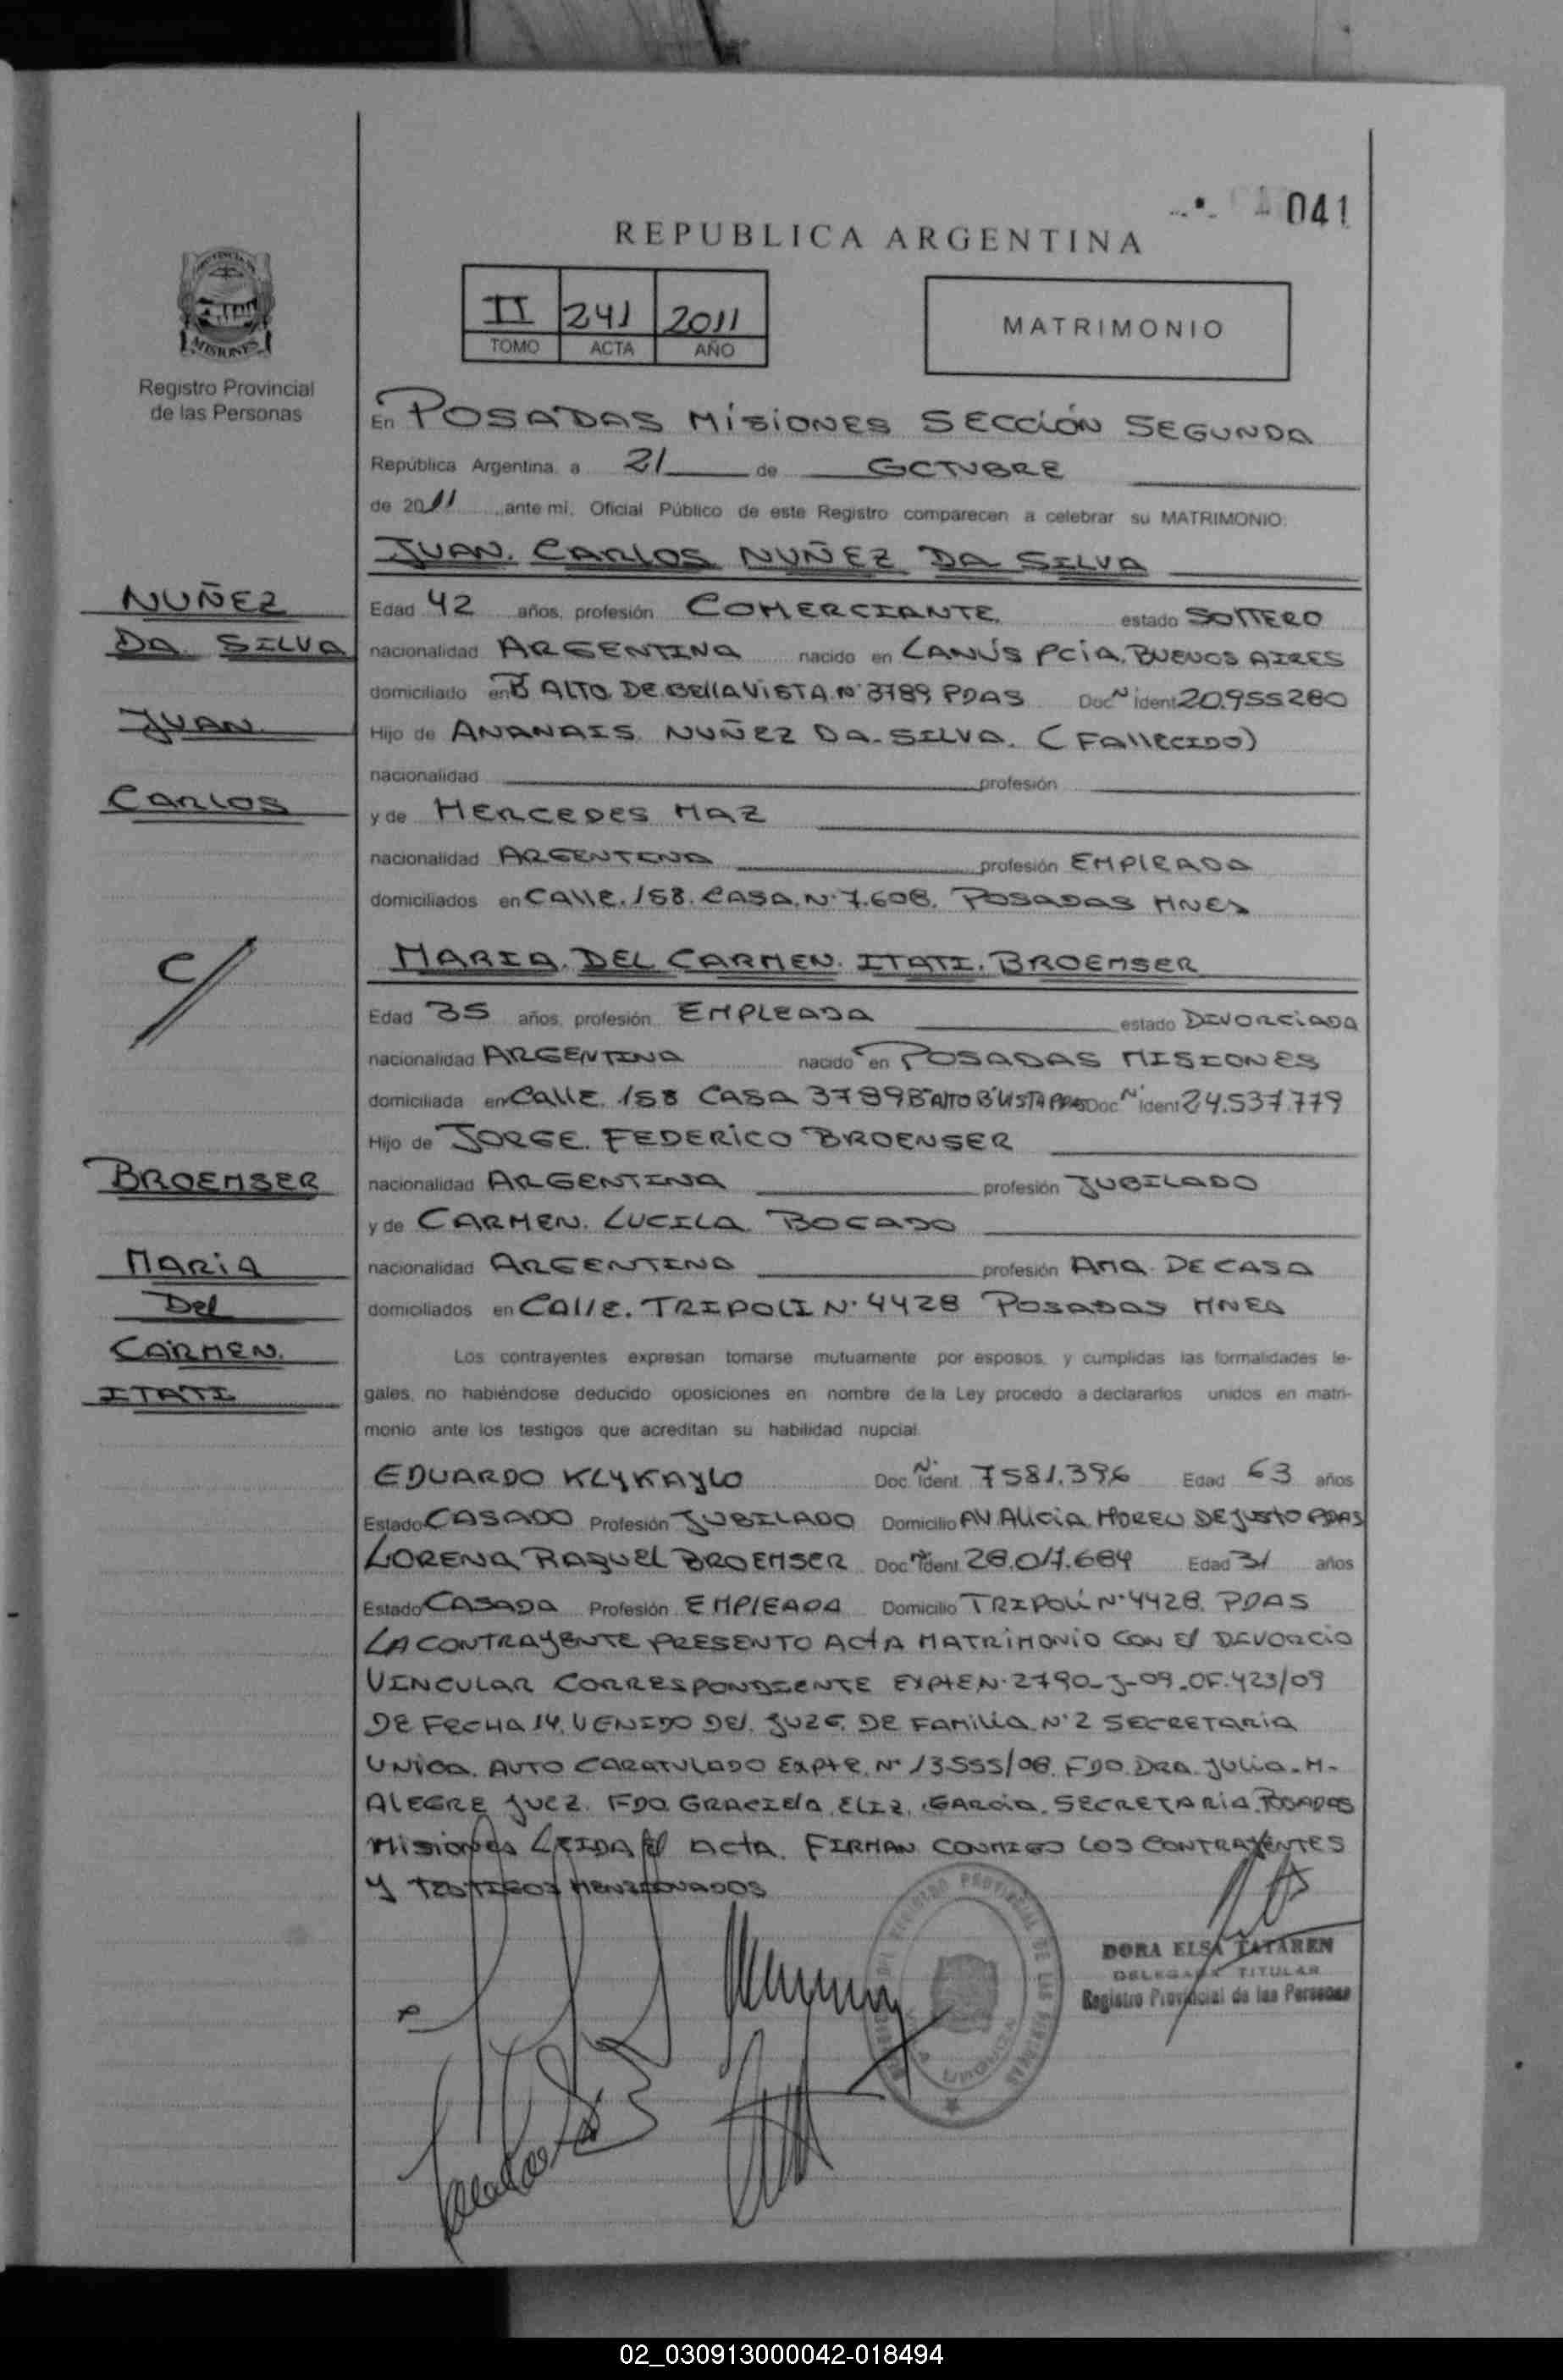 041
REPUBLICA ARGENTINA
II 241 2011
TOMO ACTA AÑO
MATRIMONIO
MISIONES
Registro Provincial
de las Personas
En POSADAS MISIONES SECCIÓN SEGUNDA
República Argentina a 21 de OCTUBRE
de 2011 ante mi, Oficial Público de este Registro comparecen a celebrar su MATRIMONIO:
JUAN. CARLOS NUÑEZ DA SILVA
NUÑEZ
DA SILVA
JUAN
CARLOS
Edad 42 años, profesión COMERCIANTE. estado SOLTERO
nacionalidad ARGENTINA nacido en LANÚS PCIA. BUENOS AIRES
domiciliado en Bº ALTO DE BELLA VISTA Nº 3789 PDAS Doc Nº ident 20.955280
Hijo de ANANAIS NUÑEZ DA-SILVA. (FALLECIDO)
nacionalidad profesión
y de MERCEDES MAZ
nacionalidad ARGENTINA profesión EMPLEADA
domiciliados en CALLE. 158. CASA. Nº 7.608. POSADAS MNES
C/
MARIA. DEL CARMEN. ITATI. BROEMSER
Edad 35 años, profesión EMPLEADA estado DIVORCIADA
nacionalidad ARGENTINA nacido en POSADAS MISIONES
domiciliada en CALLE. 158 CASA 3789 Bº ALTO B'VISTA PDAS Doc Nº ident 24.537.779
Hijo de JORGE. FEDERICO BROENSER
nacionalidad ARGENTINA profesión JUBILADO
y de CARMEN. LUCILA. BOCADO
nacionalidad ARGENTINA profesión AMA. DE CASA
domiciliados en CALLE. TRIPOLI Nº 4428 POSADAS MNES
BROEMSER
MARIA
DEL
CARMEN.
ITATI
Los contrayentes expresan tomarse mutuamente por esposos, y cumplidas las formalidades le-
gales, no habiéndose deducido oposiciones en nombre de la Ley procedo a declararlos unidos en matri-
monio ante los testigos que acreditan su habilidad nupcial.
EDUARDO KLYKAYLO Doc. Nº ident. 7581.396 Edad 63 años
Estado CASADO Profesión JUBILADO Domicilio AV ALICIA MOREU DE JUSTO PDAS
LORENA RAQUEL BROEMSER Doc Nº ident 28.017.684 Edad 31 años
Estado CASADA Profesión EMPLEADA Domicilio TRIPOLI Nº 4428. PDAS
LA CONTRAYENTE PRESENTO ACTA MATRIMONIO CON EL DEVORCIO
VINCULAR CORRESPONDIENTE EXPTE Nº 2790-J-09-OF. 423/09
DE FECHA 14. VENIDO DEL JUZG. DE FAMILIA Nº 2 SECRETARIA
UNICA. AUTO CARATULADO EXPTE. Nº 13.555/08. FDO. DRA. JULIA. M.
ALEGRE JUEZ. FDO GRACIELA ELIZ. GARCIA. SECRETARIA. POSADAS
MISIONES LEIDA EL ACTA. FIRMAN CONMIGO LOS CONTRAYENTES
Y TESTIGOS MENZIONADOS
REGISTRO PROVINCIAL DE LAS PERSONAS
DORA ELSA TATAREN
DELEGADA TITULAR
Registro Provincial de las Personas
02_030913000042-018494